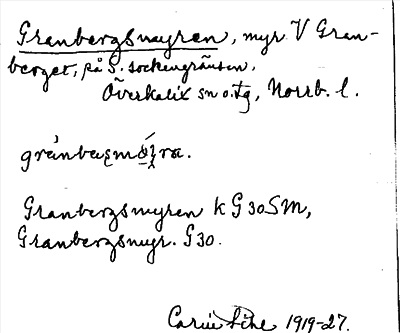 Granbergsmyren, myr V Gran-
berget, på S. sockengränsen.
Överkalix sn o. tg, Norrb. l.
Granbergsmyren k G30SM,
Granbergsmyr. G30.
Carin 1919-27.